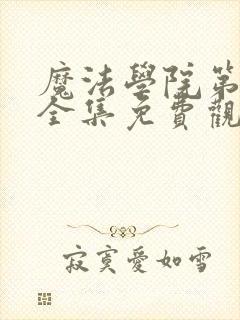 魔法學院第
全集免費觀
寂寞愛如雪